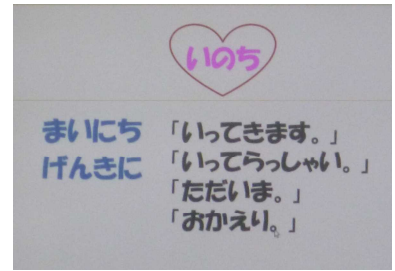 いのち
まいにち
げんきに
「いってきます。」
「いってらっしゃい。」
「ただいま。」
「おかえり。」